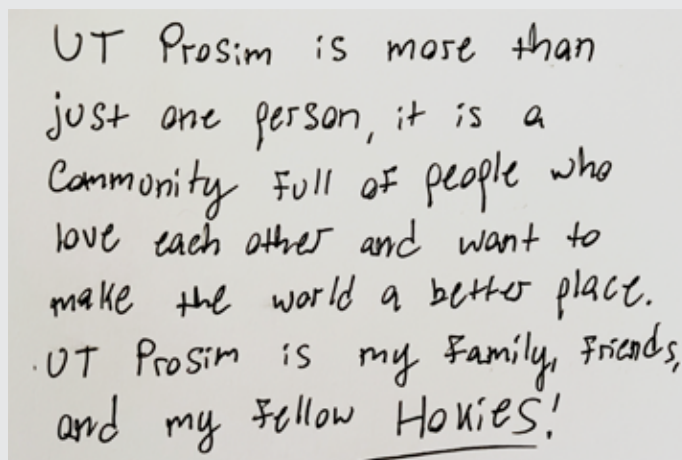 UT Prosim is more than
just one person, it is a
Community Full of people who
love each other and want to
make the world a better place.
UT Prosim is my Family, Friends,
and my Fellow Hokies!